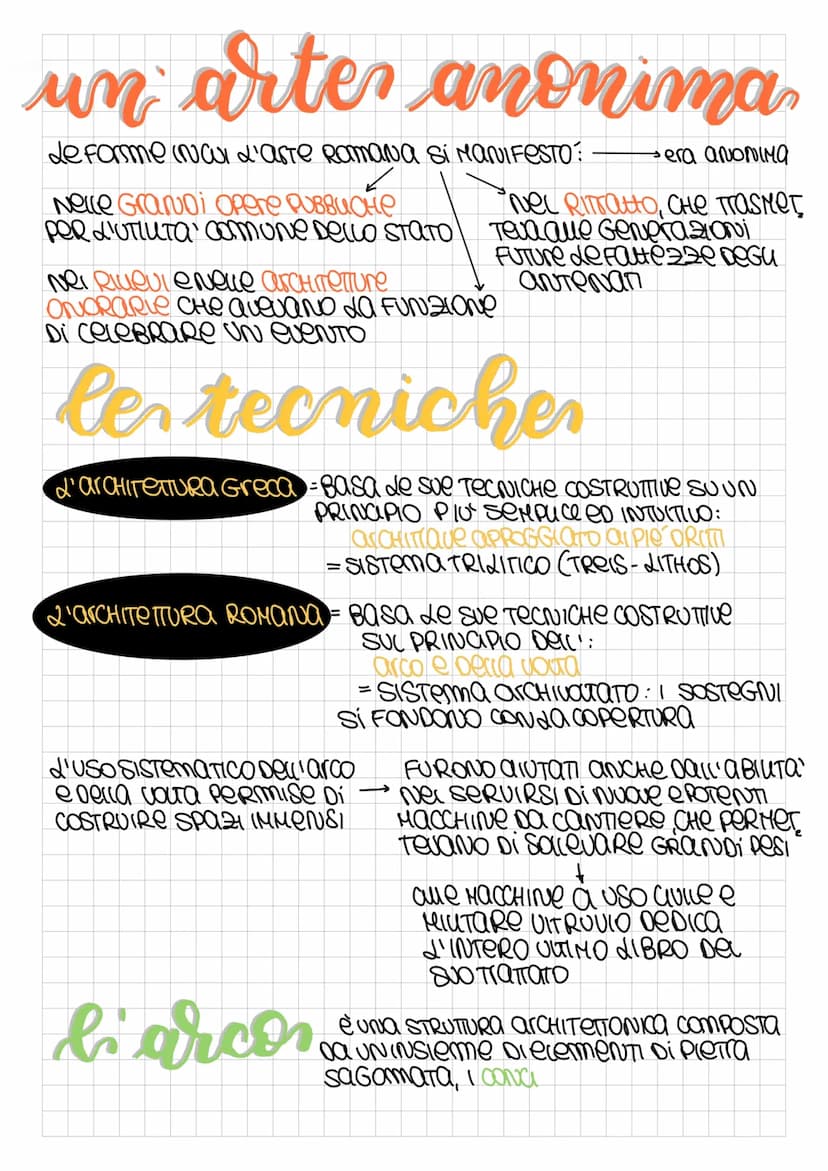 un' arte anonima
le forme in cui l'arte romana si manifestò: → era anonima
nelle grandi opere pubbliche
per l'utilità comune dello stato
nel ritratto, che trasmet,
teva alle generazioni
future le fattezze degli
antenati
nei rilievi e nelle architetture
onorarie che avevano la funzione
di celebrare un evento
le tecniche
l'architettura greca = basa le sue tecniche costruttive su un
principio più semplice ed intuitivo:
architrave appoggiato ai piedritti
= sistema trilitico (treis-lithos)
l'architettura romana = basa le sue tecniche costruttive
sul principio dell':
arco e della volta
= sistema archivoltato: i sostegni
si fondono con la copertura
l'uso sistematico dell'arco
e della volta permise di
costruire spazi immensi
→ furono aiutati anche dall'abilità
nel servirsi di nuove e potenti
macchine da cantiere, che permet,
tevano di sollevare grandi pesi
alle macchine a uso civile e
militare Vitruvio dedica
l'intero ultimo libro del
suo trattato
l'arco è una struttura architettonica composta
da un insieme di elementi di pietra
sagomata, i conci